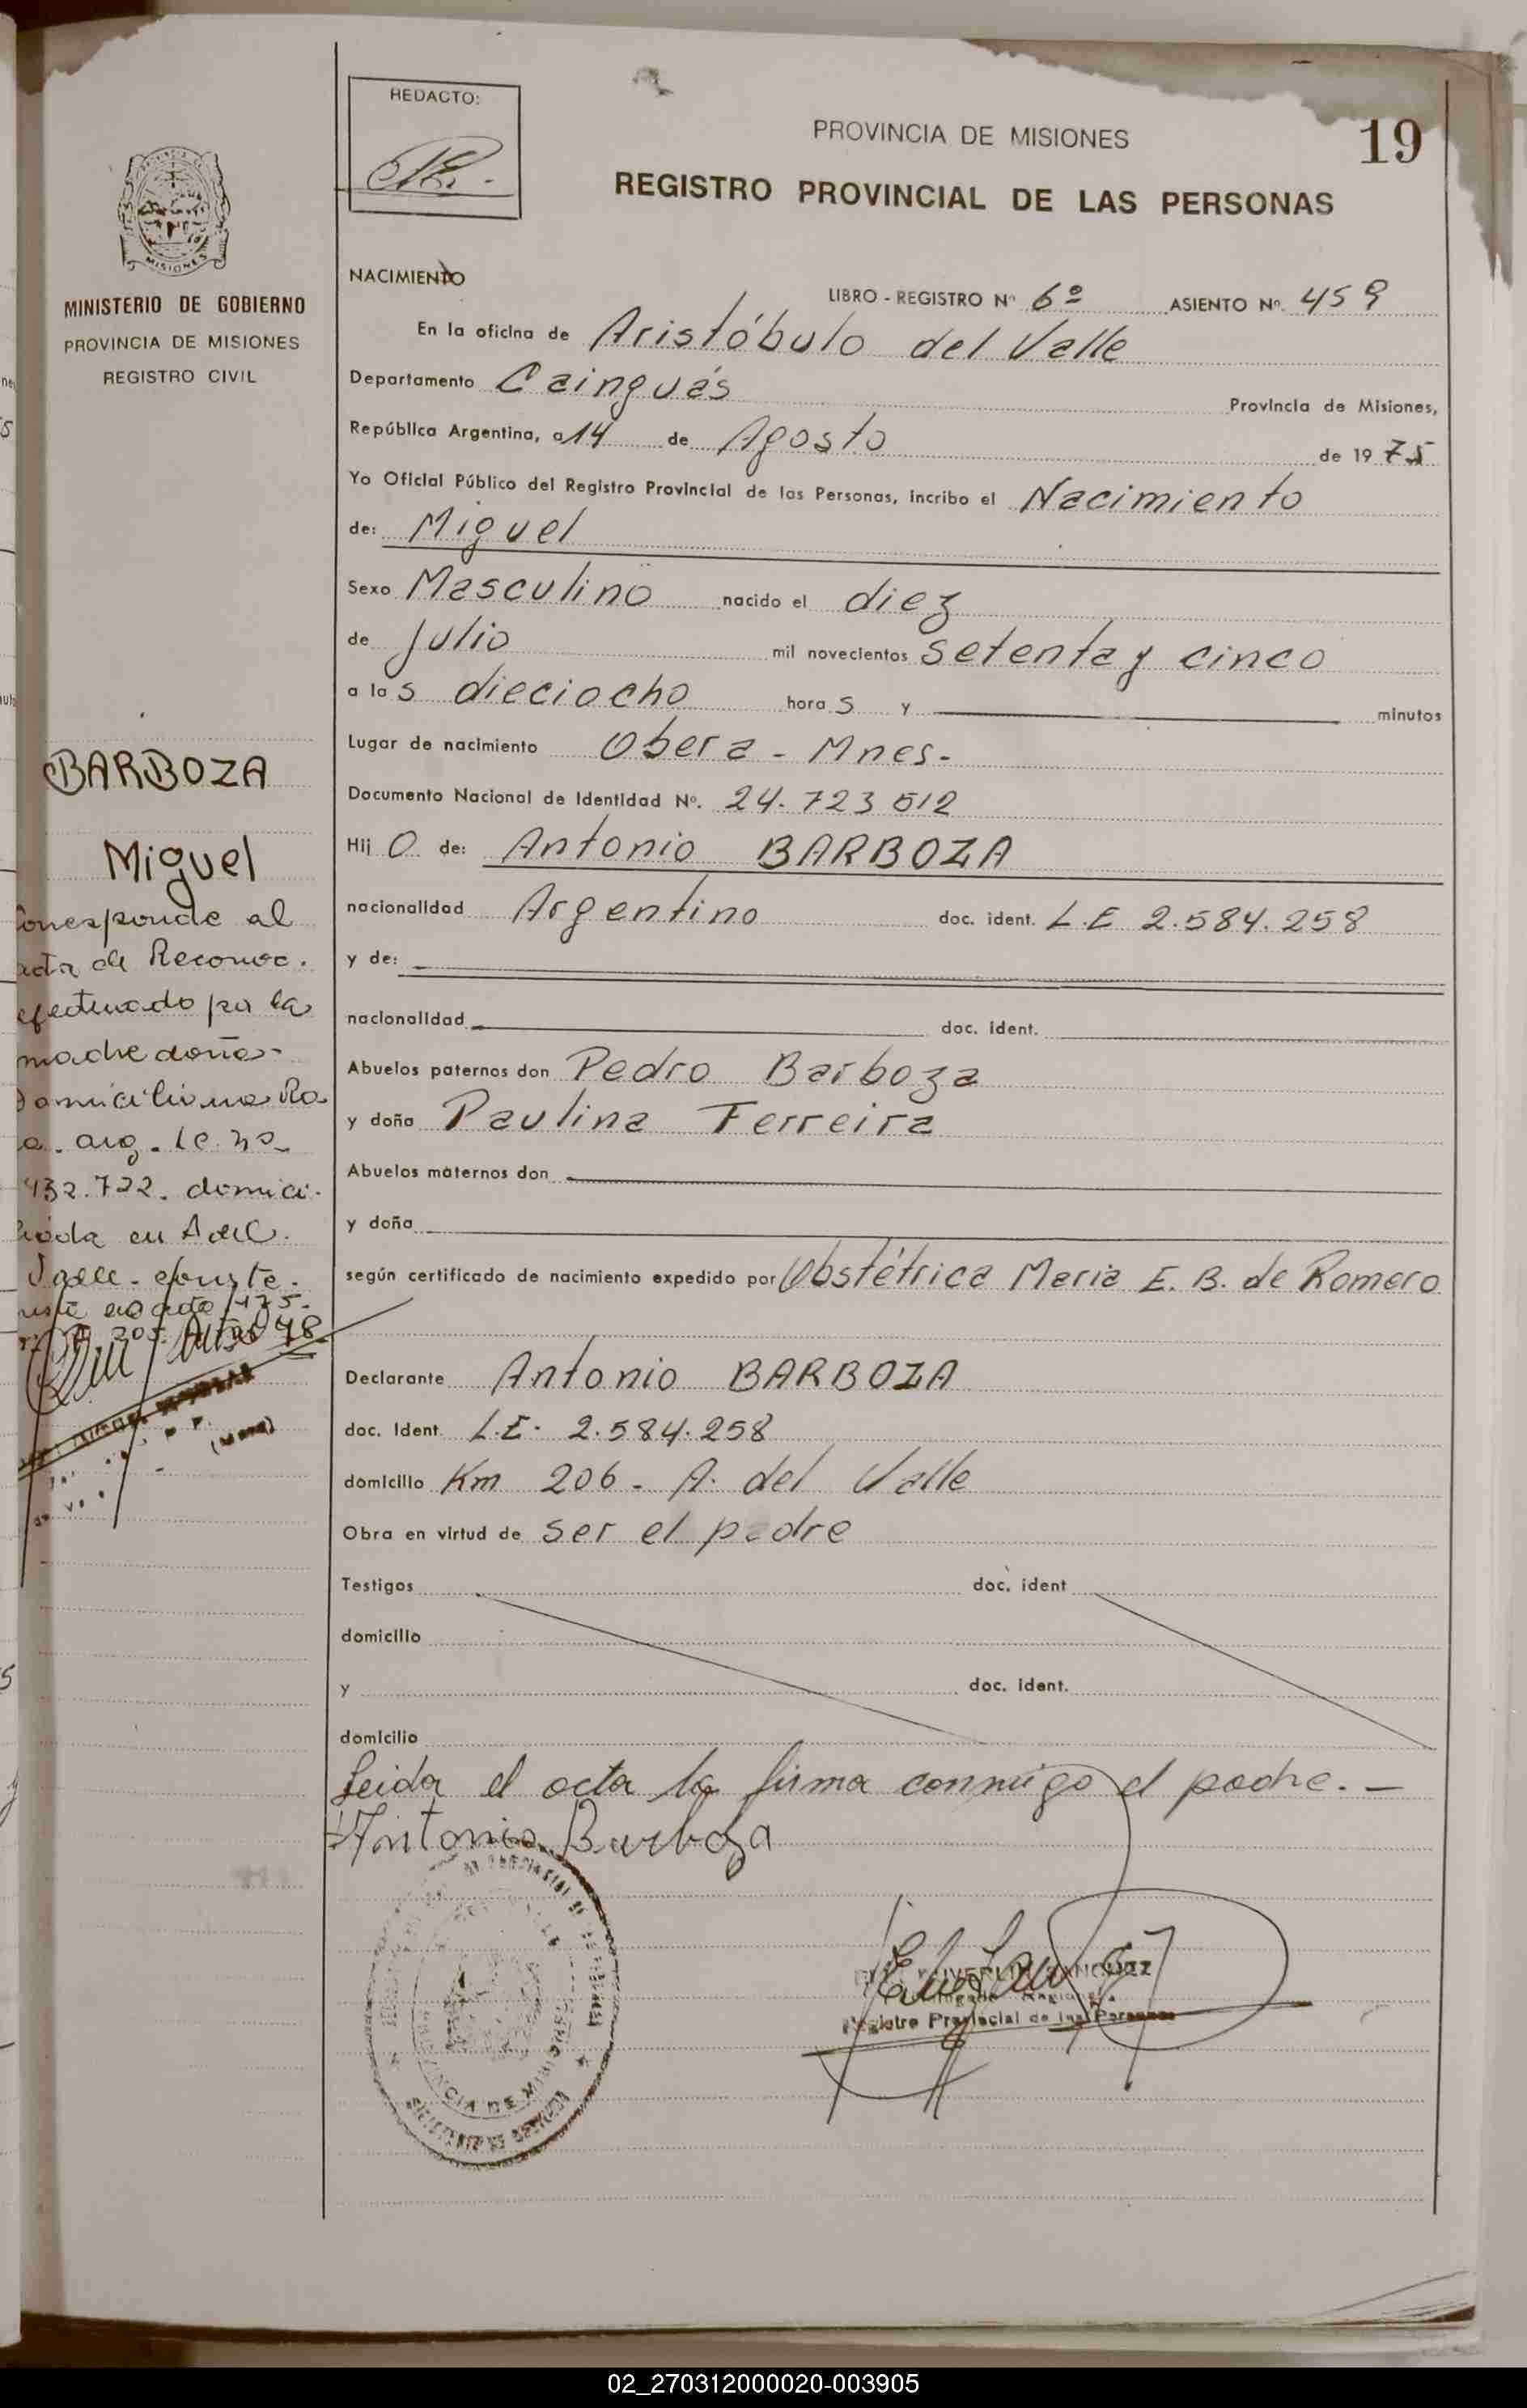 REDACTO:
PROVINCIA DE MISIONES
19
REGISTRO PROVINCIAL DE LAS PERSONAS
MISIONES
MINISTERIO DE GOBIERNO
PROVINCIA DE MISIONES
REGISTRO CIVIL
NACIMIENTO
LIBRO - REGISTRO Nº 6º ASIENTO Nº. 459
En la oficina de Aristóbulo del Valle
Departamento Cainguás Provincia de Misiones,
República Argentina, a 14 de Agosto de 1975
Yo Oficial Público del Registro Provincial de las Personas, incribo el Nacimiento
de: Miguel
Sexo Masculino nacido el diez
de Julio mil novecientos setenta y cinco
a las dieciocho horas y minutos
Lugar de nacimiento Obera - Mnes.
Documento Nacional de Identidad Nº. 24.723 512
Hijo de: Antonio BARBOZA
nacionalidad Argentino doc. ident. L.E 2.584.258
y de:
nacionalidad doc. ident.
Abuelos paternos don Pedro Barboza
y doña Paulina Ferreira
Abuelos maternos don
y doña
según certificado de nacimiento expedido por Obstétrica Maria E. B. de Romero
Declarante Antonio BARBOZA
doc. Ident. L.E. 2.584.258
domicilio Km 206 - A. del Valle
Obra en virtud de ser el padre
Testigos doc. ident
domicilio
y doc. ident.
domicilio
Leida el acta la firma conmigo el padre. -
Antonio Barboza
BARBOZA
Miguel
Corresponde al
acta de Reconoc.
efectuado por la
madre doña
arg.
432.722. domici-
en
Valle.
PROVINCIA DE MISIONES
Registro Provincial de las Personas
02_270312000020-003905